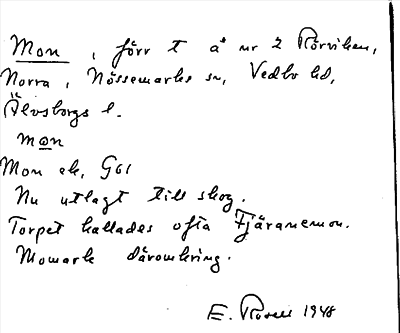 Mon, förr t å nr 2 Rörviken,
Norra, Nössemarks sn, Vedbo hd,
Älvsborgs l.
mon
Mon ek, G61
Nu utlagt till skog.
Torpet kallades ofta Fjäranemon.
Momark däromkring.
E. Rosell 1948